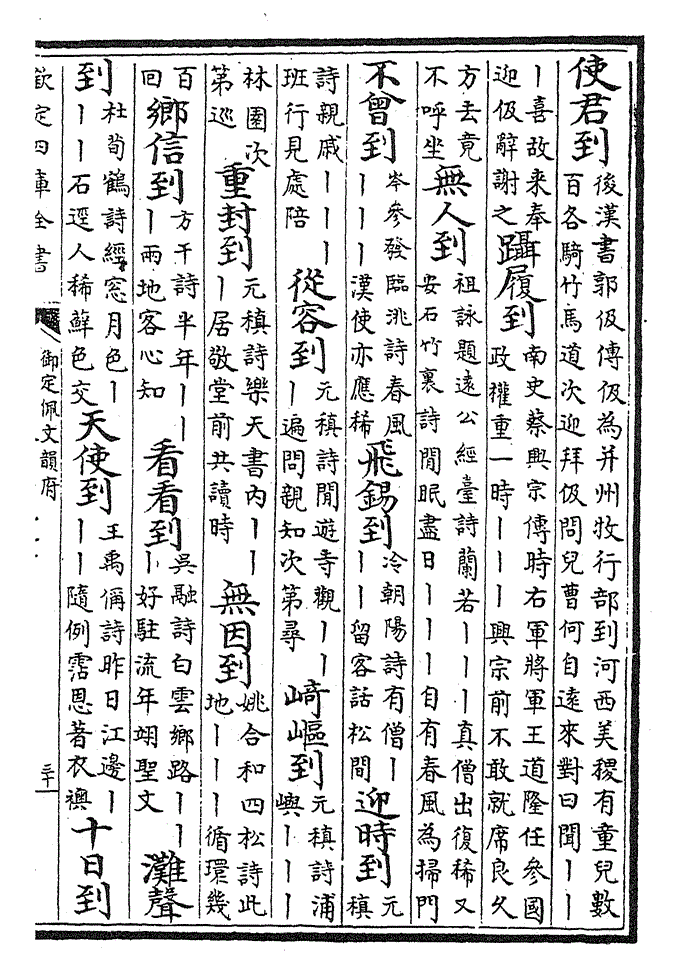 使君到
後漢書郭伋傳伋為并州牧行部到河西美稷有童兒數
百各騎竹馬道次迎拜伋問兒曹何自遠來對曰聞丨丨
丨喜故来奉
迎伋辭謝之
躡履到
南史蔡興宗傳時右軍將軍王道隆任參國
政權重一時丨丨丨興宗前不敢就席良久
方去竟
不呼坐
無人到
祖詠題遠公經臺詩蘭若丨丨丨真僧出復稀又
安石竹裏詩閒眠盡日丨丨丨自有春風為掃門
不曾到
岑參發臨洮詩春風
丨丨丨漢使亦應稀
飛錫到
冷朝陽詩有僧丨
丨丨留客話松間
迎時到
元
稹
詩親戚丨丨丨
班行見處陪
從容到
元稹詩閒遊寺觀丨丨
丨遍問親知次第尋
崎嶇到
元稹詩浦
嶼丨丨丨
林園次
第巡
重封到
元稹詩樂天書内丨丨
丨居敬堂前共讀時
無因到
姚合和四松詩此
地丨丨丨循環幾
百
回
鄉信到
方干詩半年丨丨
丨兩地客心知
看看到
吳融詩白雲鄉路丨丨
丨好駐流年翊聖文
灘聲
到
杜荀鶴詩經窓月色丨
丨丨石逕人稀蘚色交
天使到
王禹偁詩昨日江邊丨
丨丨隨例霑恩著衣襖
十日到
欽定四庫全書
御定佩文韻府